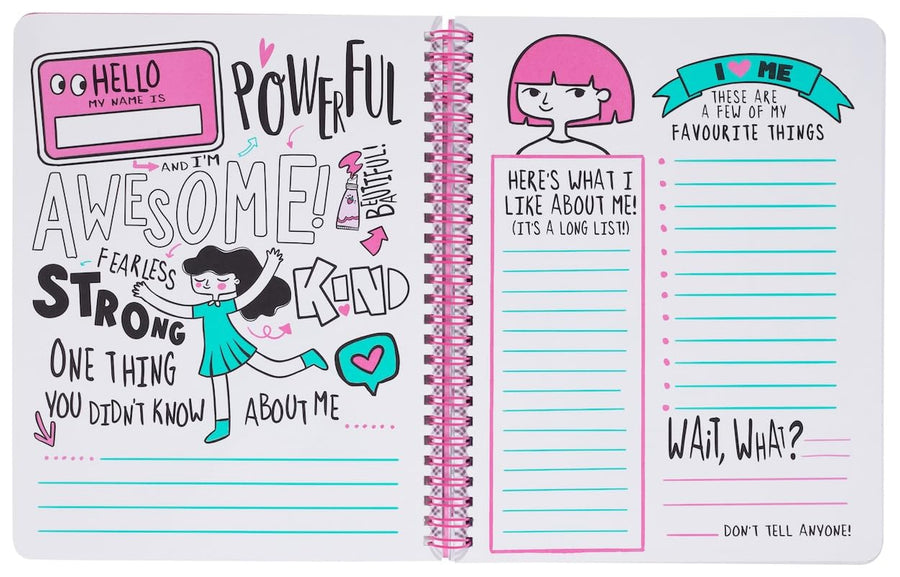 HELLO
MY NAME IS
POWERFUL
AND I'M
AWESOME!
BEAUTIFUL!
FEARLESS
STRONG
KIND
ONE THING
YOU DIDN'T KNOW ABOUT ME
HERE'S WHAT I
LIKE ABOUT ME!
(IT'S A LONG LIST!)
I ME
THESE ARE
A FEW OF MY
FAVOURITE THINGS
WAIT, WHAT?
DON'T TELL ANYONE!